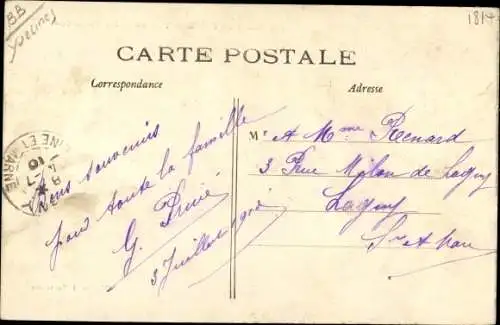 BB
Yvelines
1814
CARTE POSTALE
Correspondance
Adresse
Bons souvenirs
pour toute la famille
G.
3 Juillet
M A Mme Renard
3 Rue Milon de Lagny
Lagny
S et Marne
NE ET MARNE